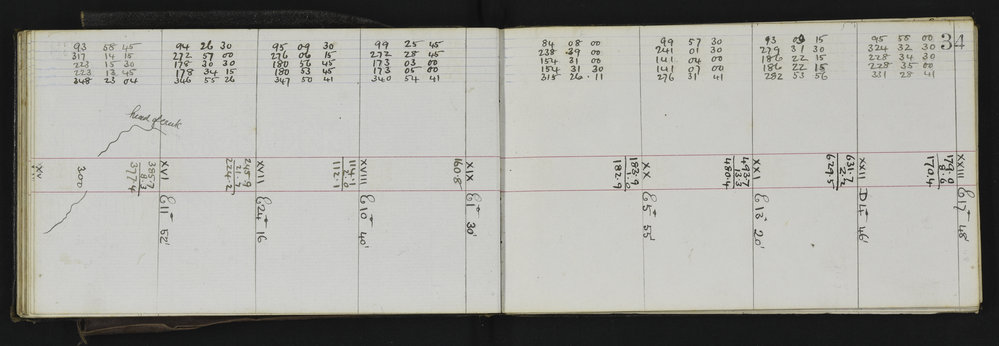 34
93 58 45
317 14 15
223 15 30
223 13 45
348 23 04
94 26 30
272 57 00
178 30 30
178 34 15
346 55 26
95 09 30
276 06 15
180 56 45
180 53 45
347 50 41
99 25 45
272 28 45
173 03 00
173 05 00
340 54 41
84 08 00
238 39 00
154 31 00
154 31 30
315 26 11
99 57 30
241 01 30
141 04 00
141 07 00
276 31 41
93 09 15
279 31 30
186 22 15
186 22 15
282 53 56
95 58 00
324 32 30
228 34 30
228 35 00
331 28 41
head of creek
XV
300
385.7
8.3
377.4
XVI
E 11 52'
245.9
21.7
224.2
XVII
E 24 16
114.1
2.0
112.1
XVIII
E 10 40'
160.8
XIX
E 1 30'
183.9
1.0
182.9
XX
E 5 55'
493.7
13.3
480.4
XXI
E 13 20'
631.7
2.2
629.5
XXII
D 4 46'
179.0
8.6
170.4
XXIII
E 17 48'